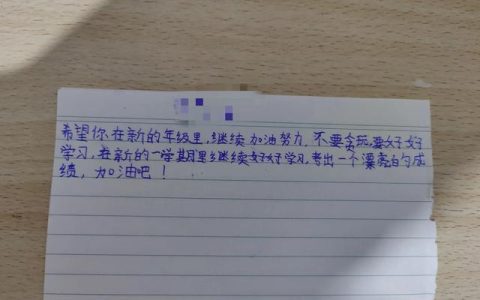 希望你在新的年级里,继续加油努力,不要贪玩,要好好
学习,在新的一学期里继续好好学习,考出一个漂亮的成
绩,加油吧!